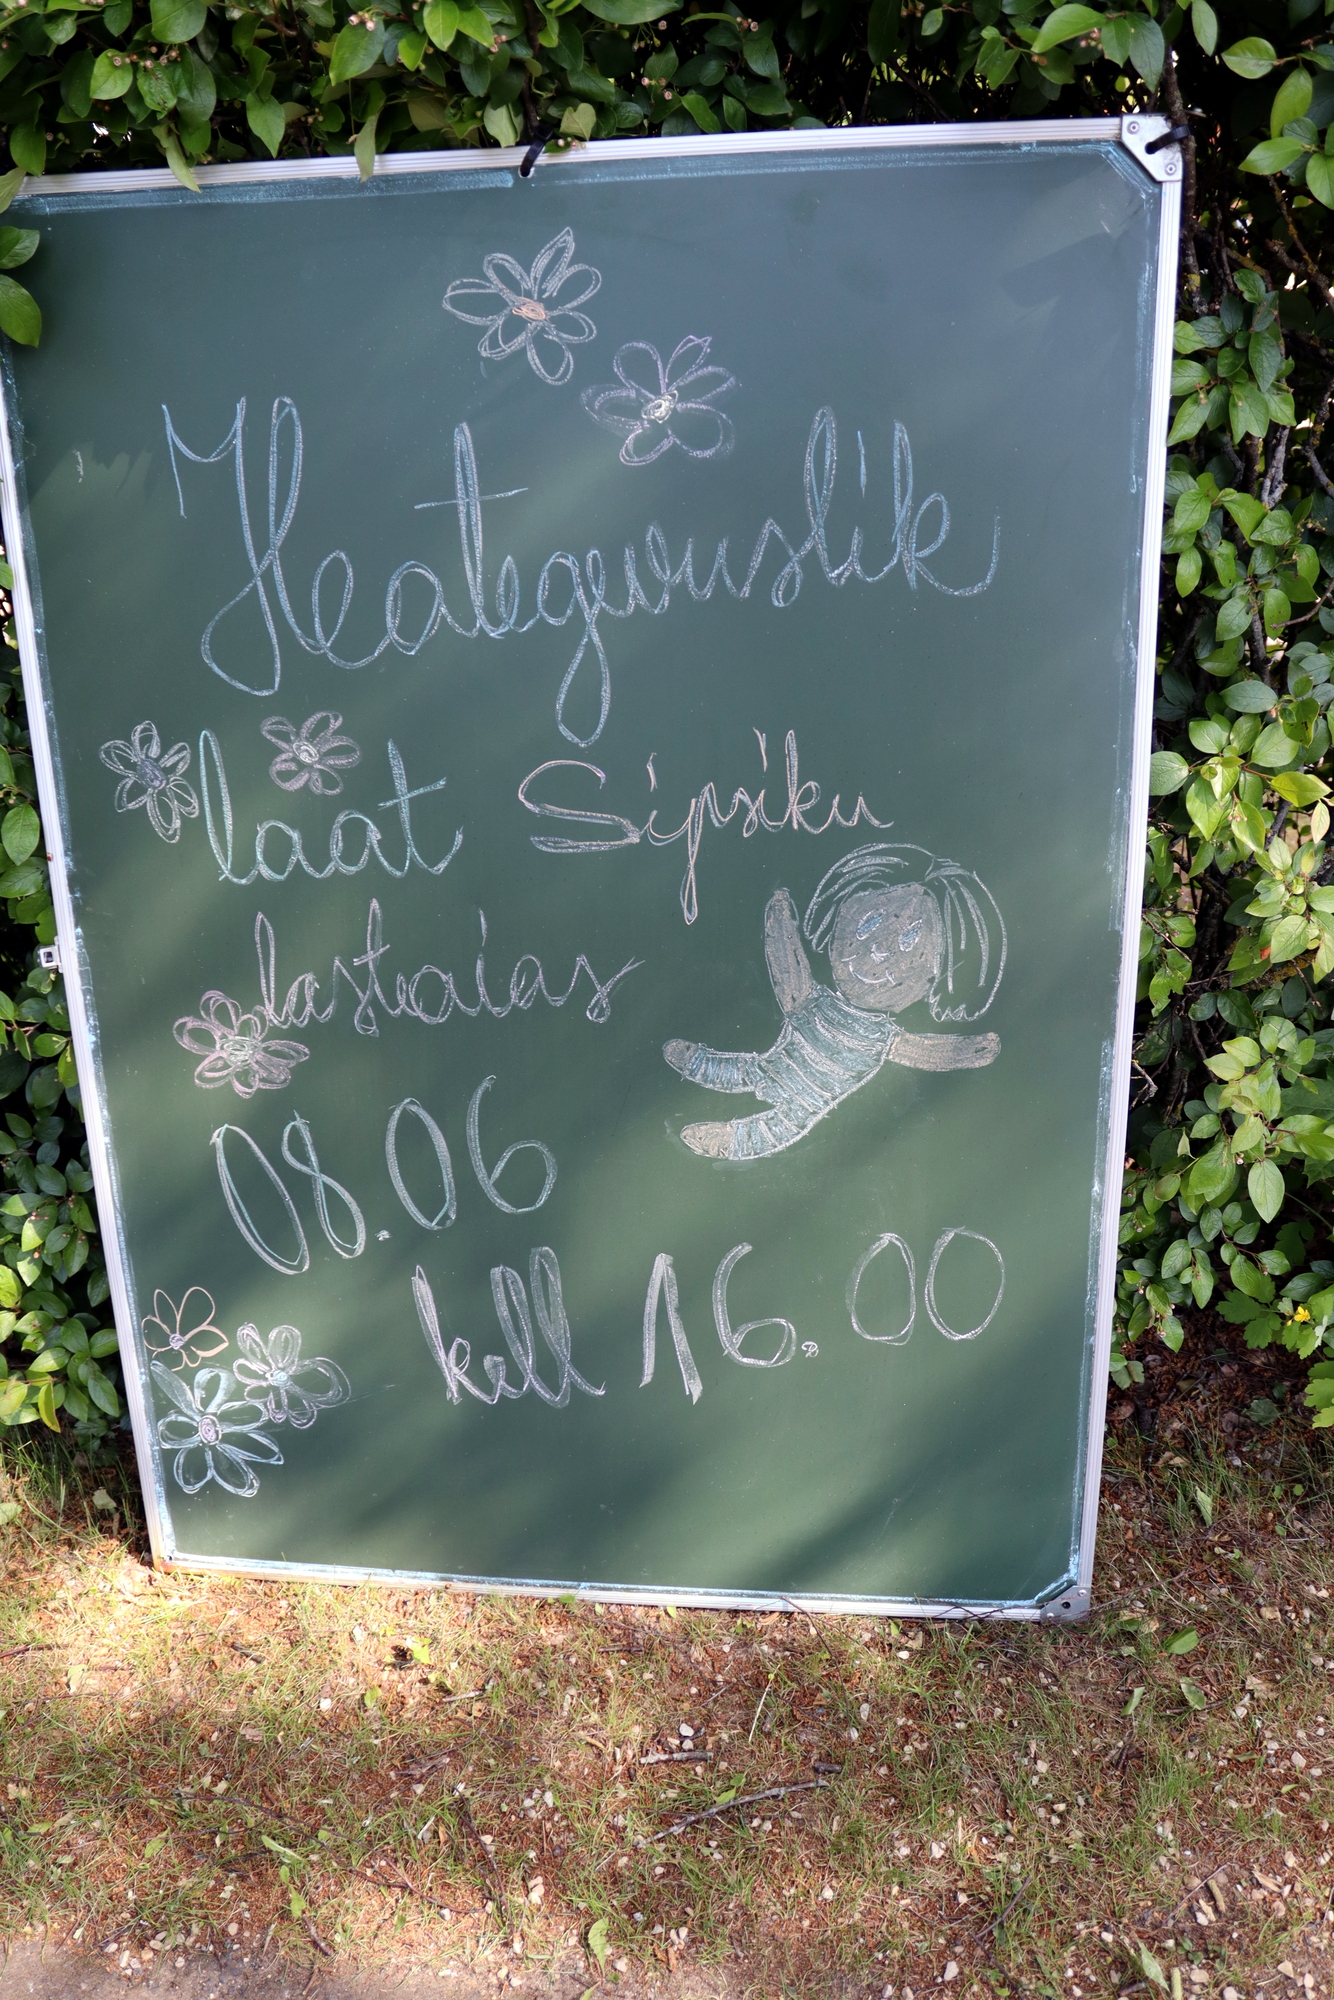 Heategevuslik
laat Sipsiku
lasteaias
08.06
kell 16.00